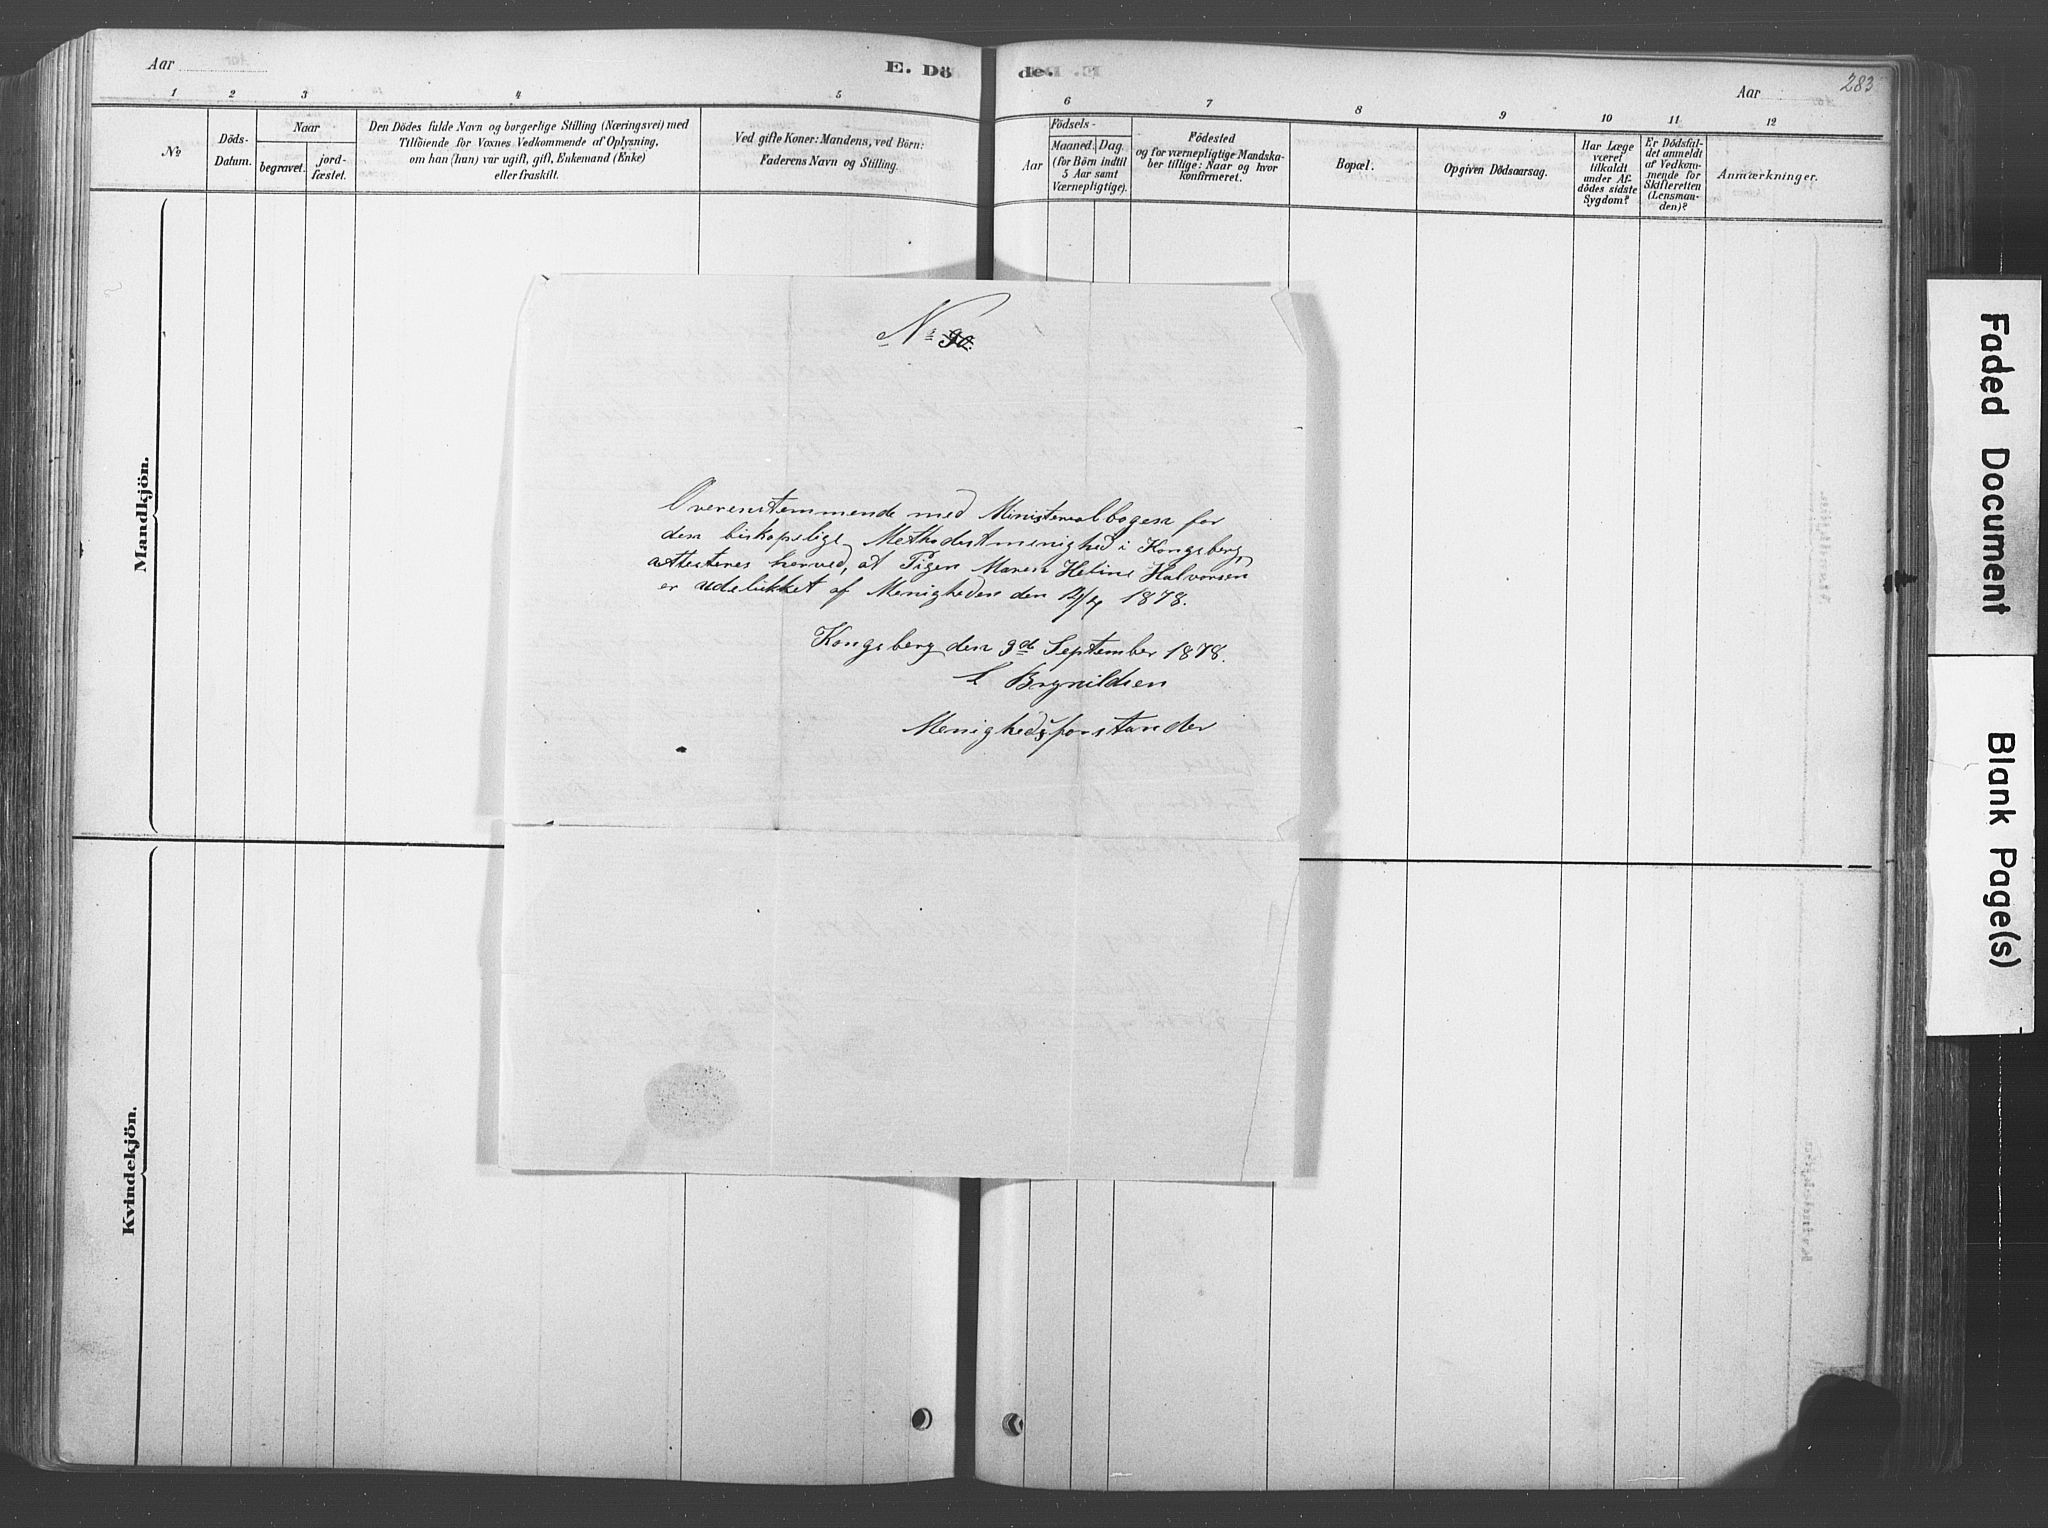 Aar
E. Dö
de.
Aar
283
1
2
3
4
5
6
7
8
9
10
11
12
No
Döds-
Datum.
Naar
begravet.
jord-
fæstet.
Den Dödes fulde Navn og borgerlige Stilling (Næringsvei) med
Tilföiende for Voxnes Vedkommende af Oplysning,
om han (hun) var ugift, gift, Enkemand (Enke)
eller fraskilt.
Ved gifte Koner: Mandens, ved Börn:
Faderens Navn og Stilling.
Födsels-
Aar
Maaned. Dag.
(for Börn indtil
5 Aar samt
Værnepligtige).
Födested
og for værnepligtige Mandska-
ber tillige: Naar og hvor
konfirmeret.
Bopæl.
Opgiven Dödsaarsag.
Har Læge
været
tilkaldt
under Af-
dödes sidste
Sygdom?
Er Dödsfal-
det anmeldt
af Vedkom-
mende for
Skifteretten
(Lensman-
den)?
Anmærkninger.
Mandkjön.
Kvindekjön.
No
Overenstemmende med Ministerialbogen for
den biskopelige Methodistmenighed i Kongsberg,
attesteres herved, at Pigen Maren Heline Halvorsen
er udelukket af Menigheden den 12/4 1878.
Kongsberg den 9de September 1878.
Brynildsen
Menighedsforstander
Faded Document
Blank Page(s)